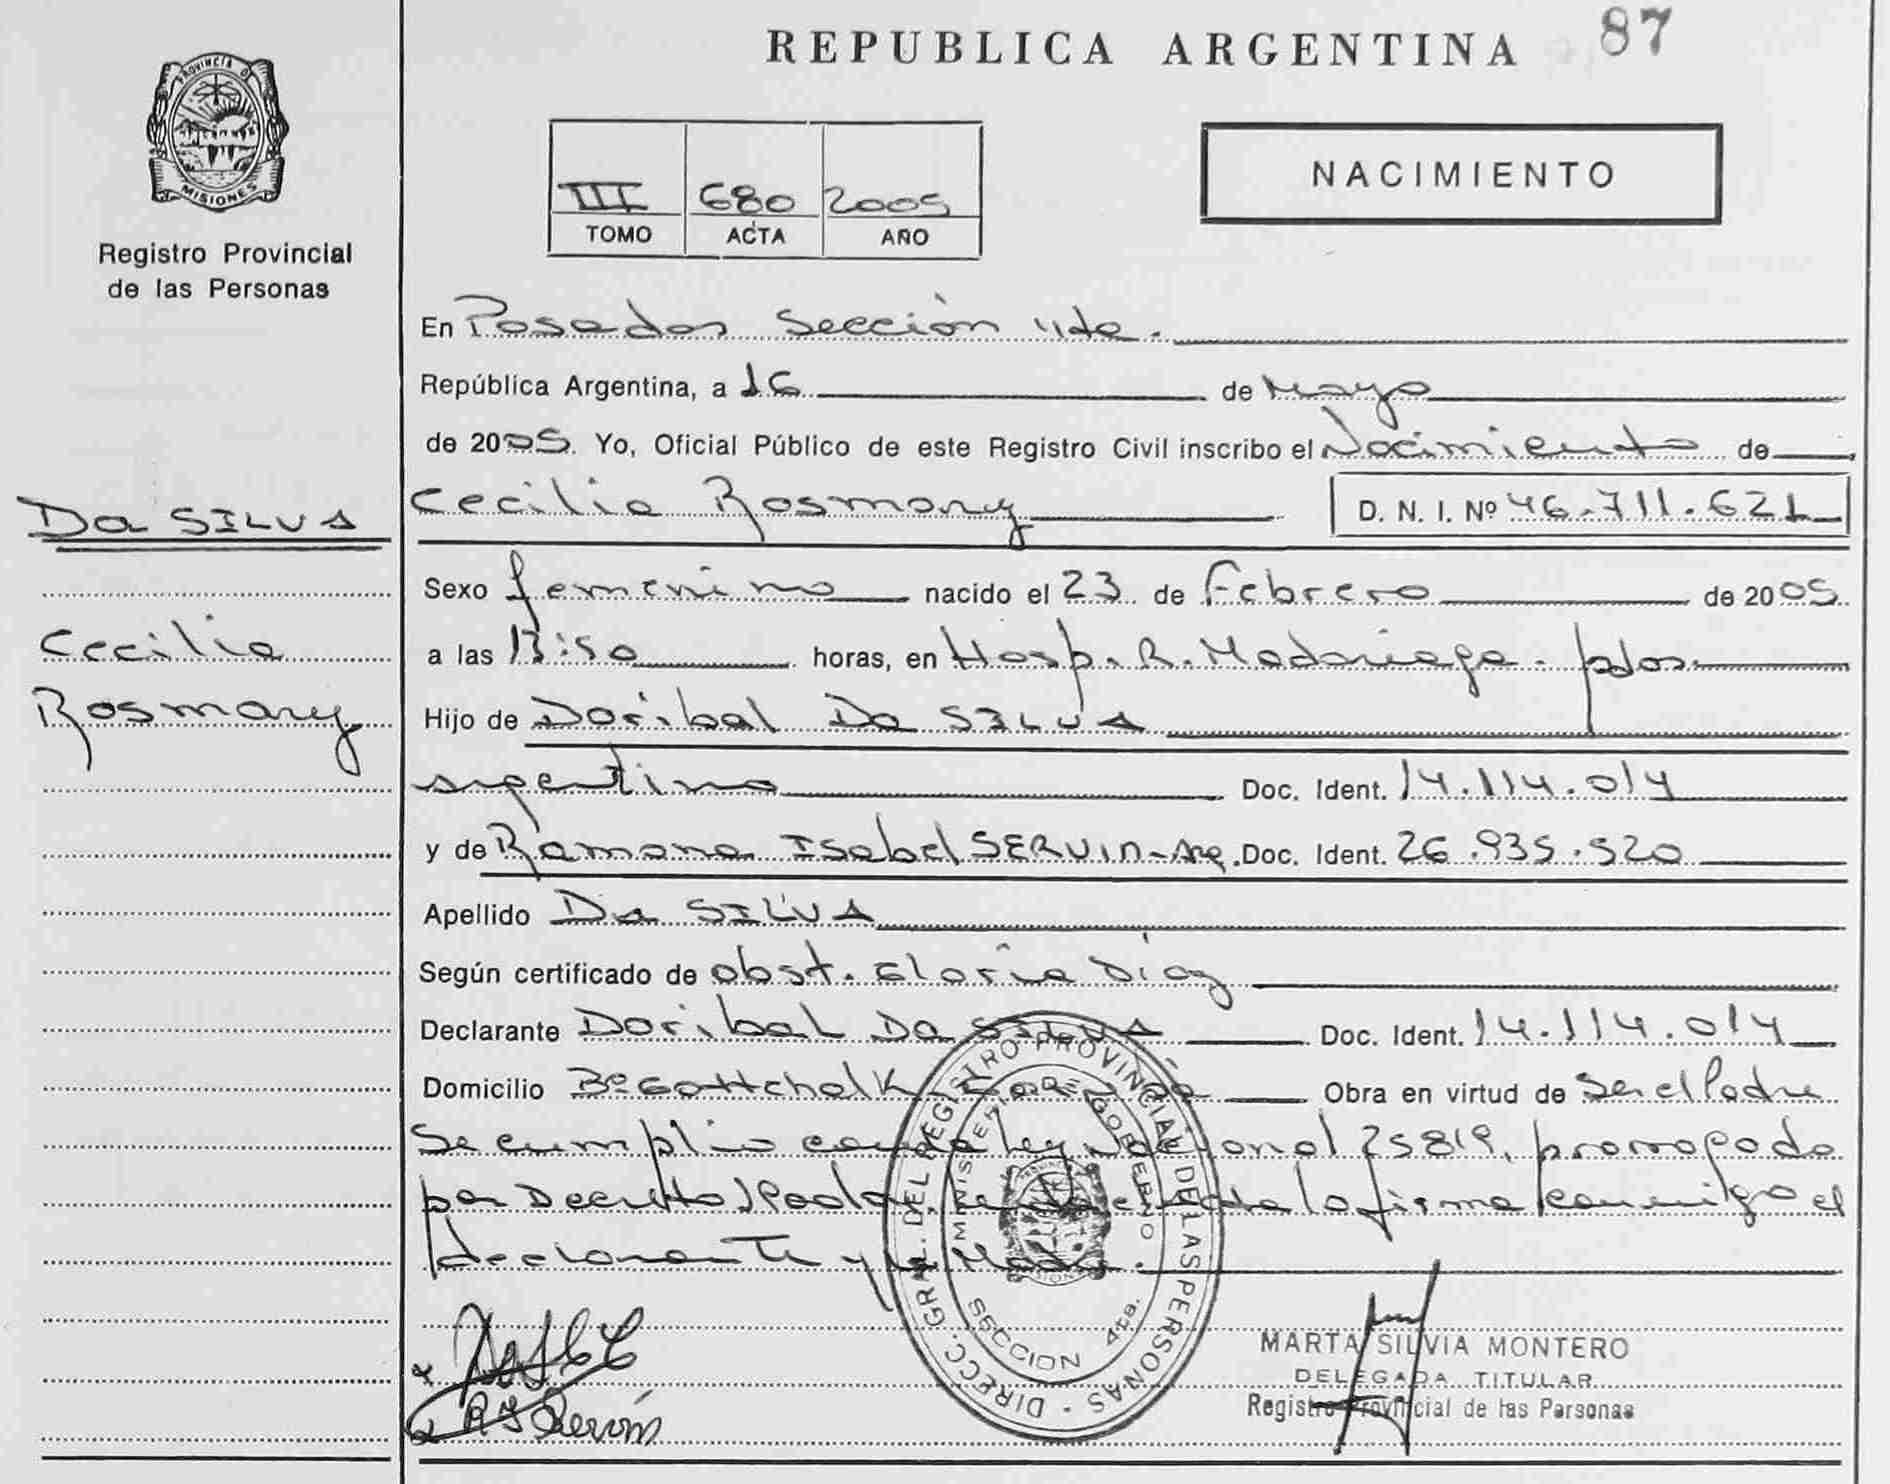 REPUBLICA ARGENTINA 87
PROVINCIA D
MISIONES
Registro Provincial
de las Personas
III 680 2005
TOMO ACTA AÑO
NACIMIENTO
En Posadas Sección 4ta.
República Argentina, a 16 de Mayo
de 2005. Yo, Oficial Público de este Registro Civil inscribo el Nacimiento de
Da SILVA
Cecilia Rosmary D. N. I. Nº 46.711.621
Sexo femenino nacido el 23 de Febrero de 2005
Cecilia
a las 13:50 horas, en Hosp. R. Madariaga. pdas.
Rosmary
Hijo de Doribal Da SILVA
argentino Doc. Ident. 14.114.014
y de Ramona Isabel SERVIN-Arg. Doc. Ident. 26.935.520
Apellido Da SILVA
Según certificado de obst. Gloria Diaz
Declarante Doribal Da SILVA Doc. Ident. 14.114.014
Domicilio Bº Gottchalk Obra en virtud de Ser el Padre
Se cumplio con la Ley Nacional 25819, prorrogada
por Decreto la firma conmigo el
declarante y la Madre.
DIRECC. GRAL. DEL REGISTRO PROVINCIAL DE LAS PERSONAS -
MINISTERIO DE GOBIERNO
SECCION 4ta.
MARTA SILVIA MONTERO
DELEGADA TITULAR
Registro Provincial de las Personas
R I Servín